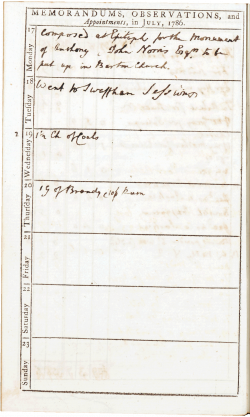 MEMORANDUMS, OBSERVATIONS, and
Appointments, in JULY, 1786.
17 Monday
Composed at Epitaph for the Monument
of Anthony John Norris Esqr. to be
put up in Barton Church.
18 Tuesday
Went to Swaffham Sessions
19 Wednesday
Ch of Coals
20 Thursday
1 g of Brandy
21 Friday
22 Saturday
23 Sunday